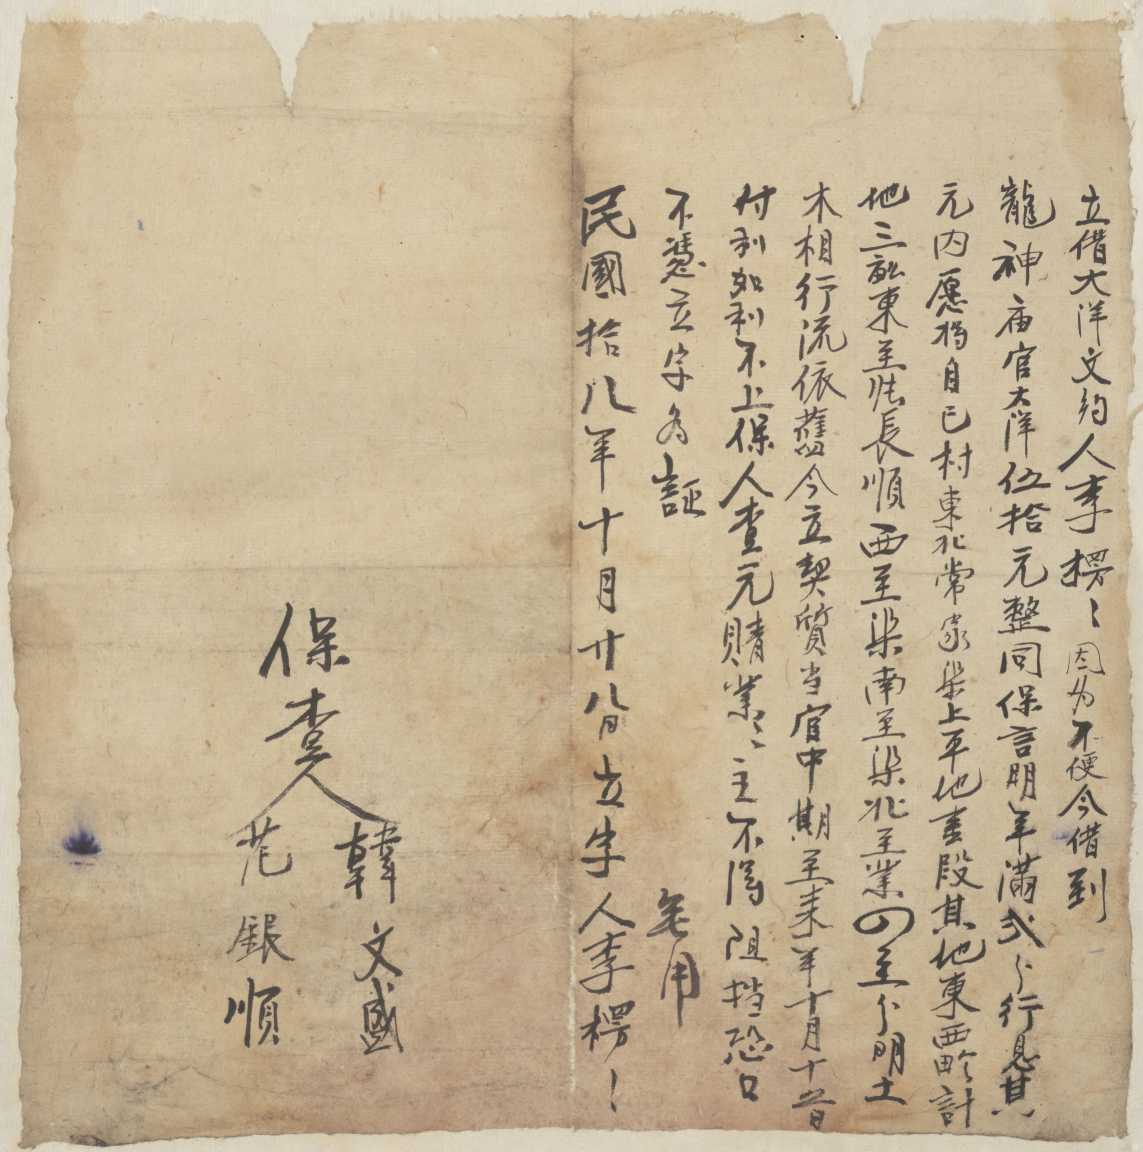 立借大洋文約人李楞〻因为不便今借到
龍神庙官大洋伍拾元整同保言明年滿弍分行息其
元内愿将自己村東北常家渠上平地壹段其地東西畛計
地三畝東至張長順西至渠南至渠北至業四至分明土
木相行流依舊今立契質当官中期至来年十月十五日
付利如利不上保人查元賭業〻主不得阻挡恐口
不憑立字为證
無用
民國拾八年十月廿八日立字人李楞〻
保查人
韓文盛
范銀順